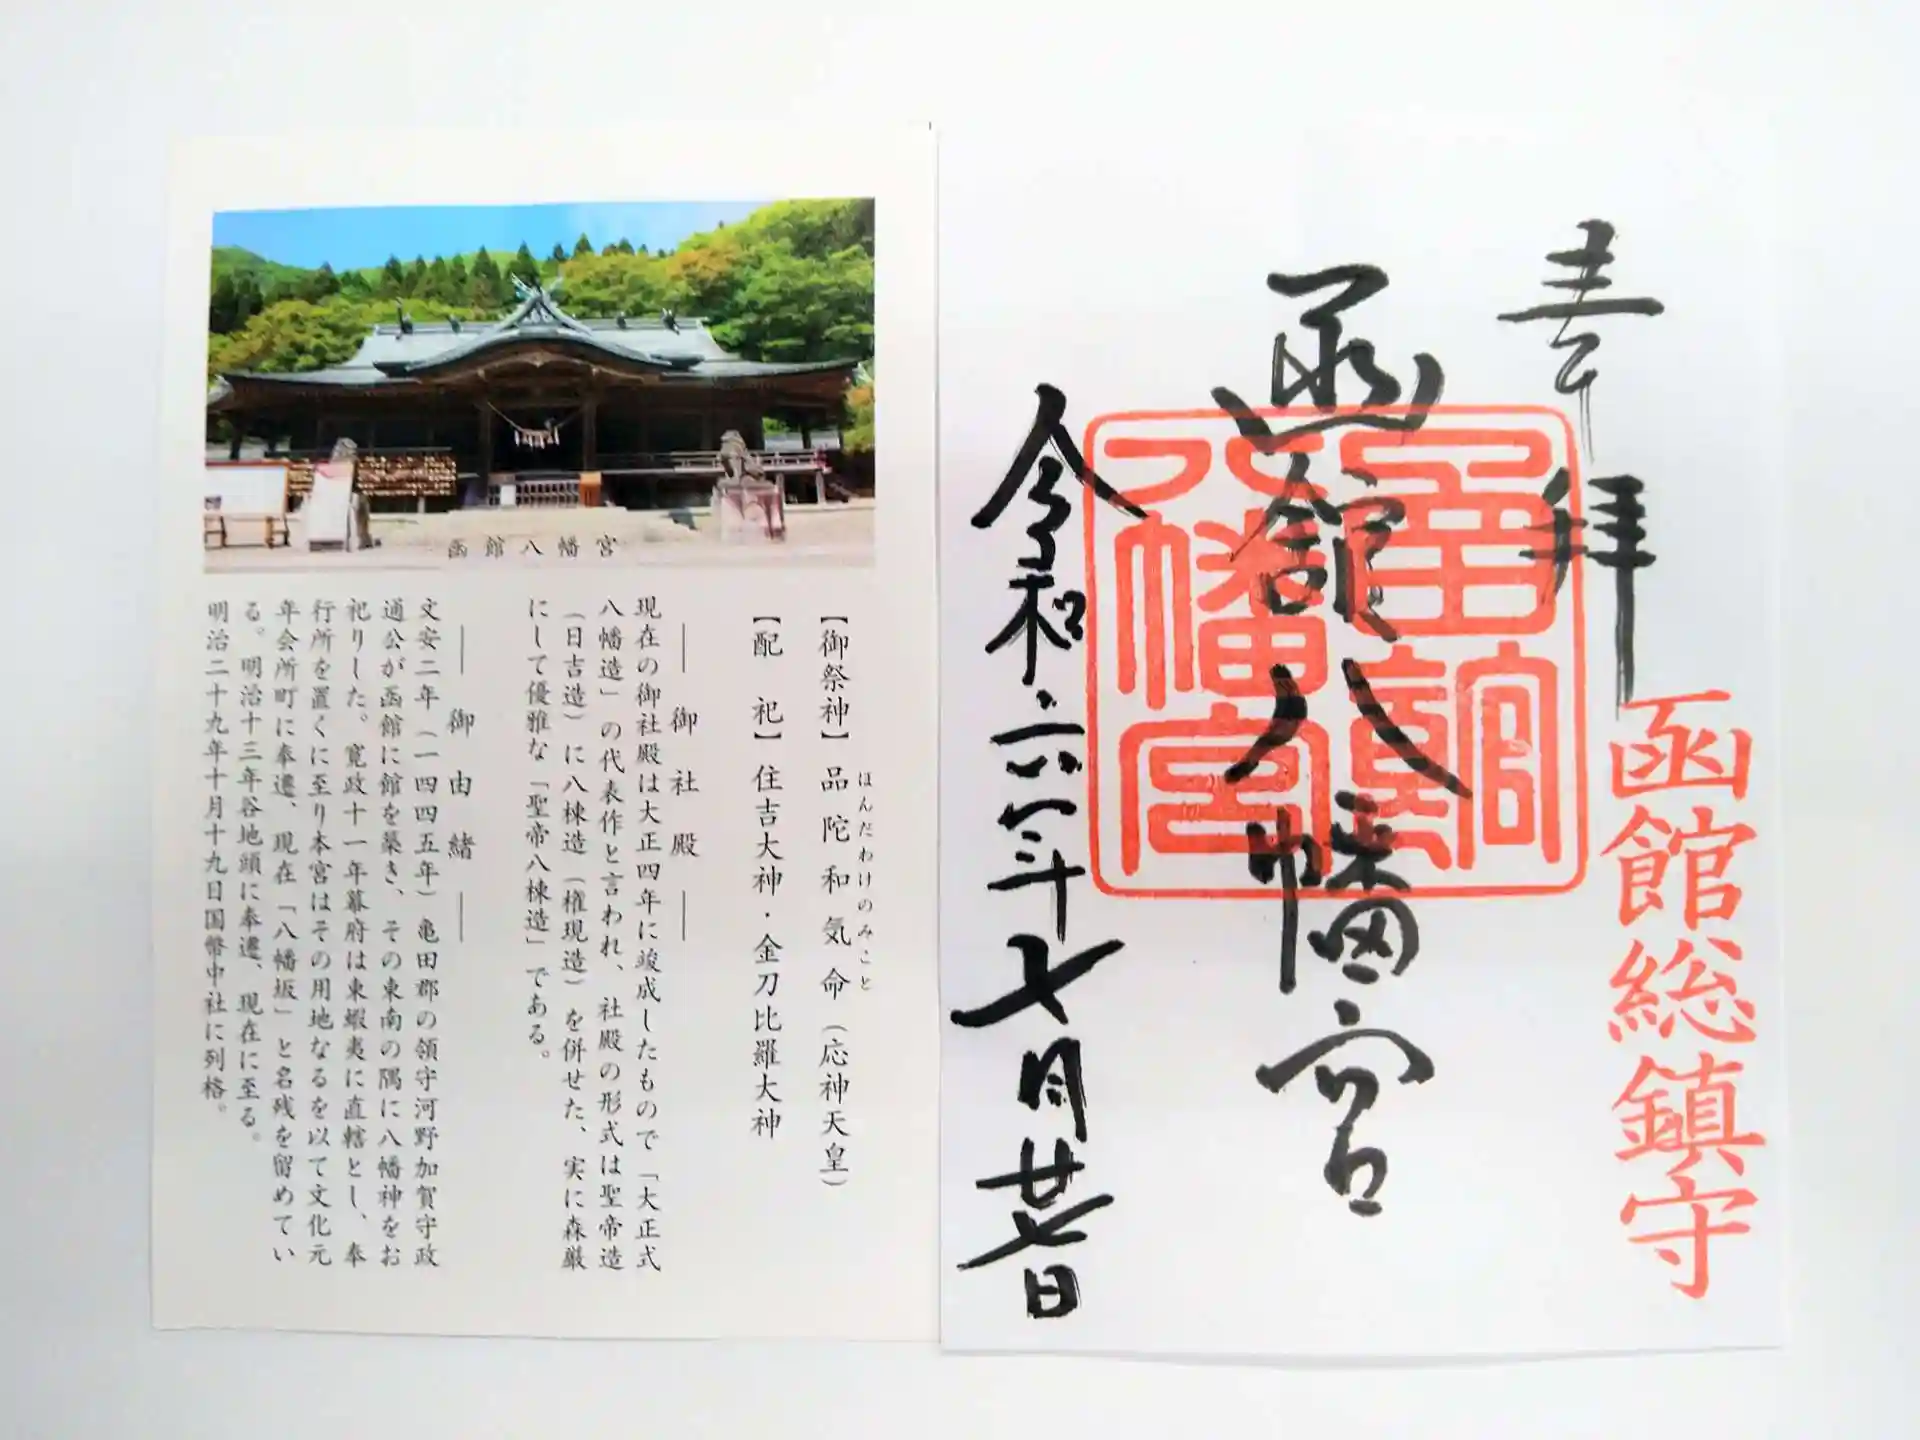 函館八幡宮
【御祭神】品陀和気命（応神天皇）
ほんだわけのみこと
【配　祀】住吉大神・金刀比羅大神
――御社殿――
現在の御社殿は大正四年に竣成したもので「大正式
八幡造」の代表作と言われ、社殿の形式は聖帝造
（日吉造）に八棟造（権現造）を併せた、実に森厳
にして優雅な「聖帝八棟造」である。
――御由緒――
文安二年（一四四五年）亀田郡の領守河野加賀守政
通公が函館に館を築き、その東南の隅に八幡神をお
祀りした。寛政十一年幕府は東蝦夷に直轄とし、奉
行所を置くに至り本宮はその用地なるを以て文化元
年会所町に奉遷、現在「八幡坂」と名残を留めてい
る。明治十三年谷地頭に奉遷、現在に至る。
明治二十九年十月十九日国幣中社に列格。
函館総鎮守
奉拝
函館八幡宮
函館八幡宮
令和六年七月廿七日